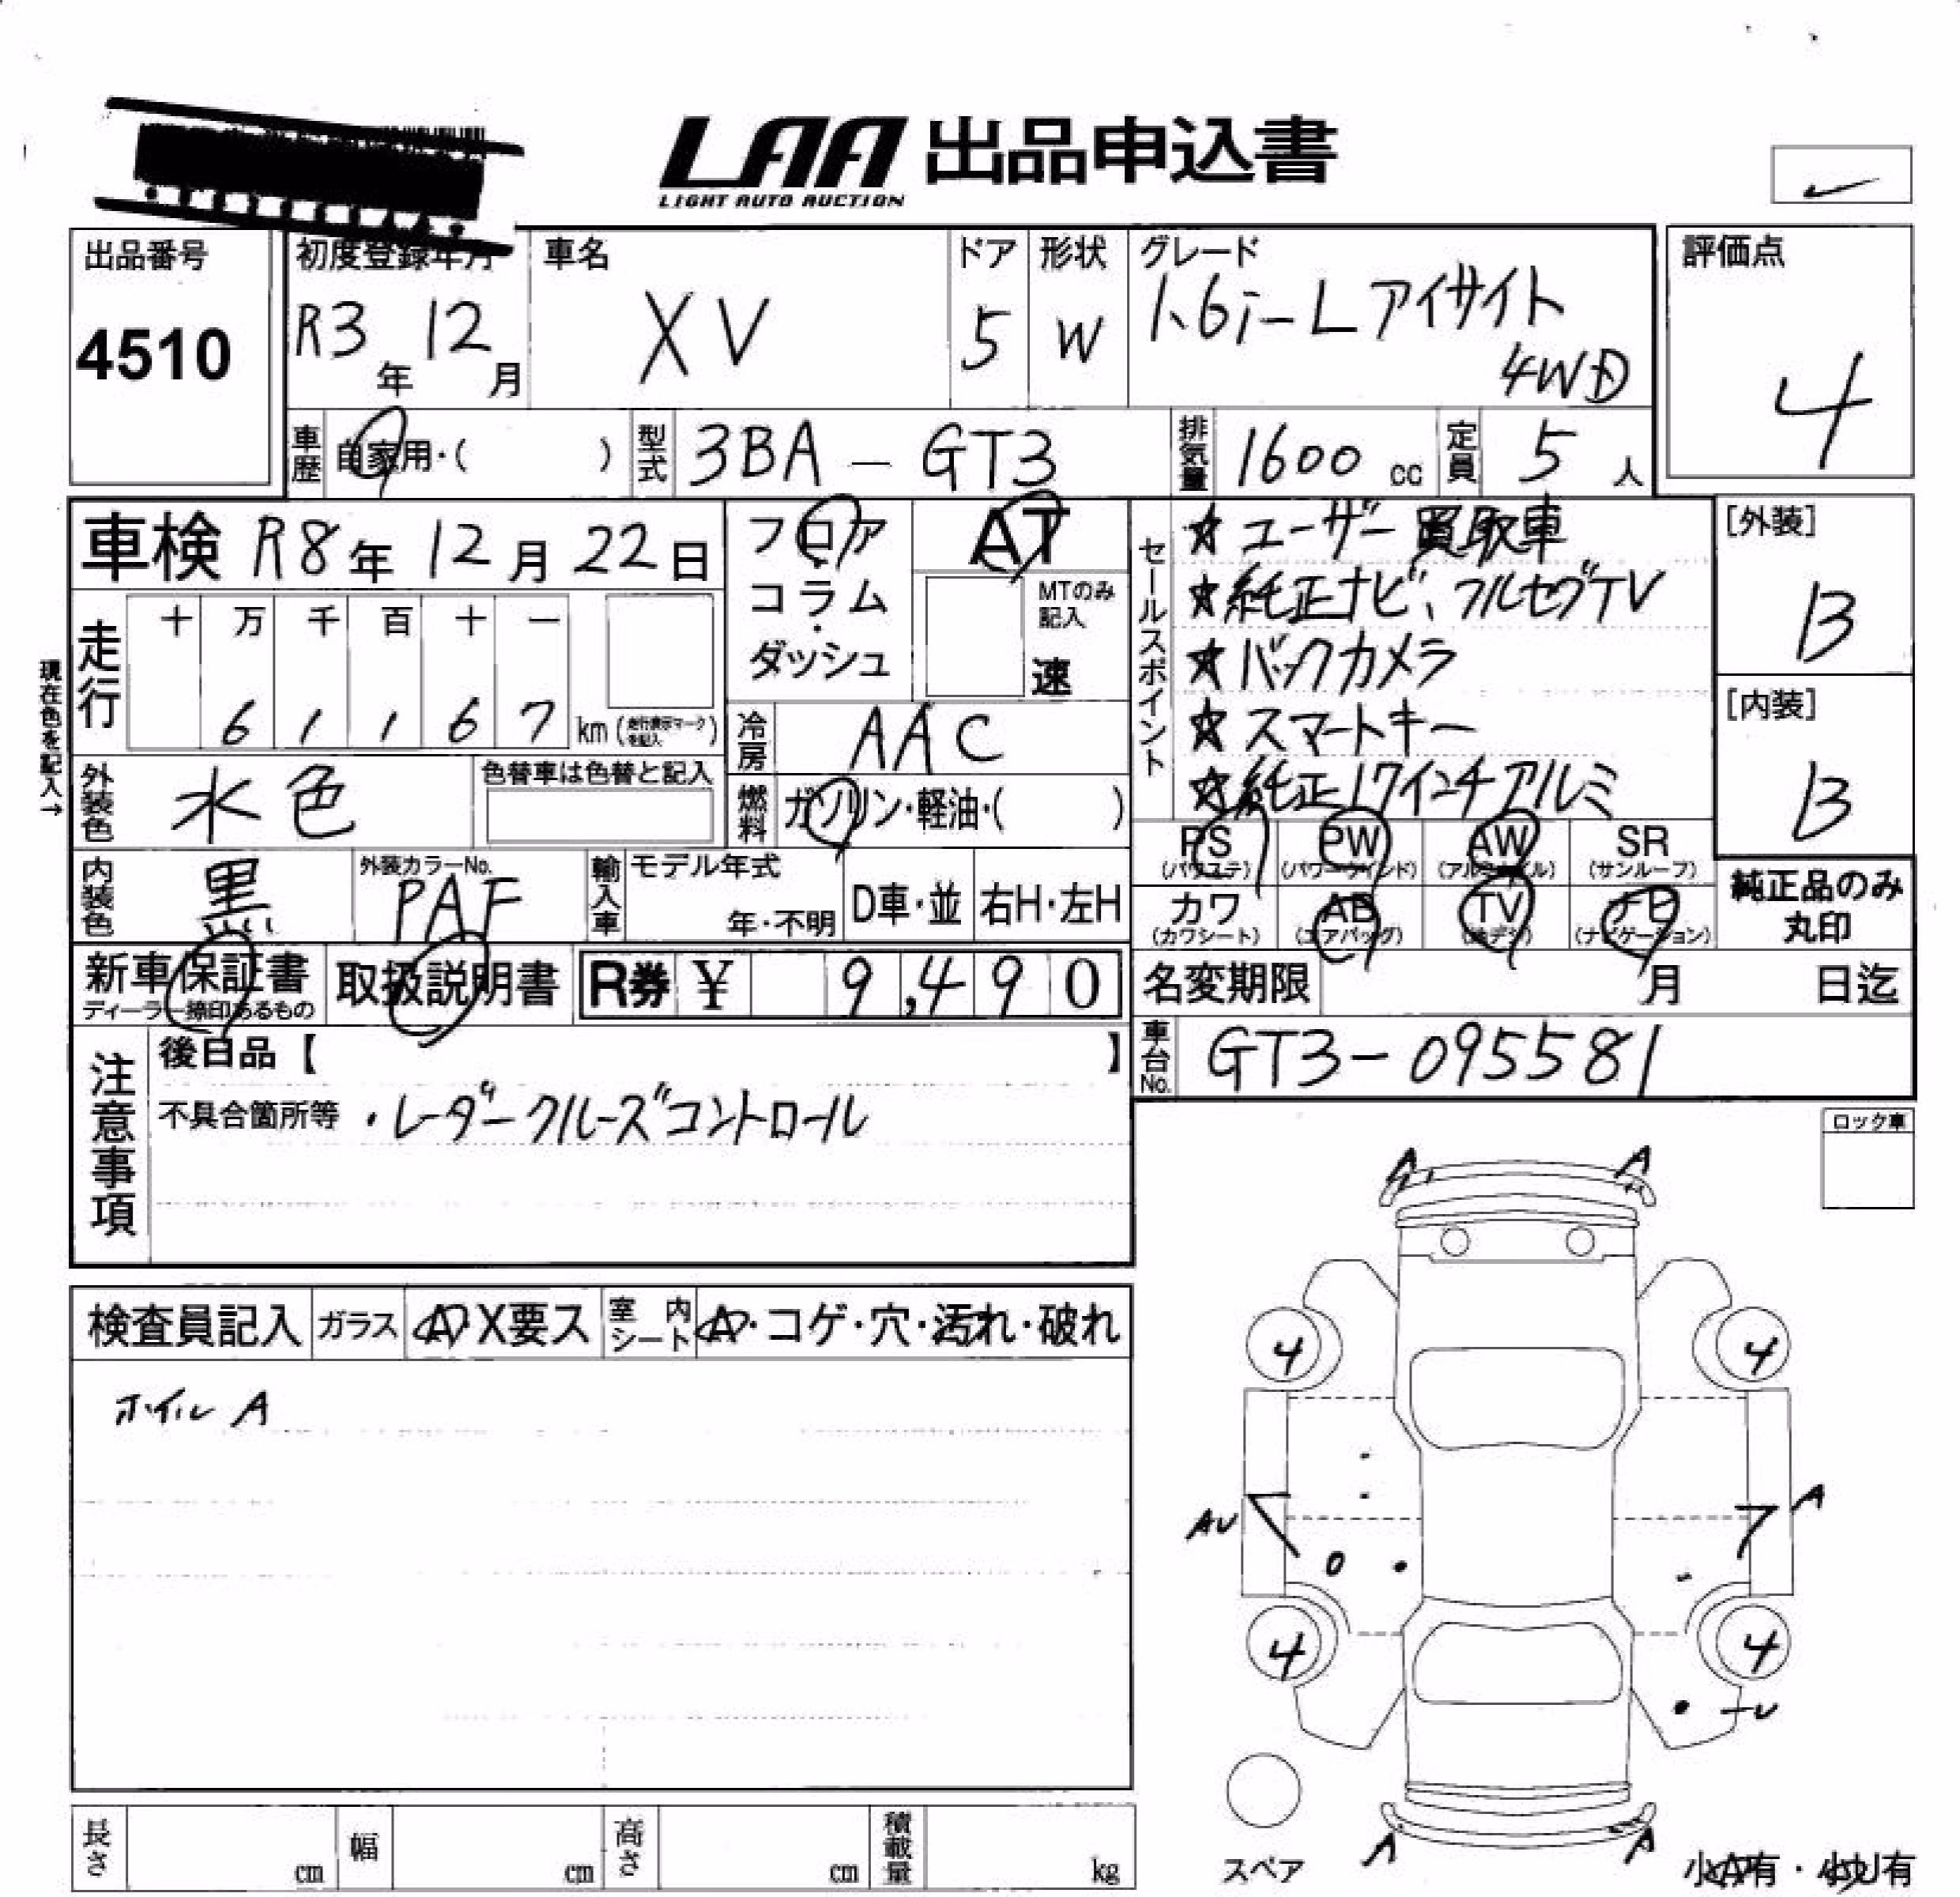 LAA 出品申込書
LIGHT AUTO AUCTION
出品番号
4510
初度登録年月
R3年 12月
車名
XV
ドア
5
形状
W
グレード
1.6i-L アイサイト
4WD
評価点
4
車歴 自家用・( )
型式 3BA - GT3
排気量 1600 cc
定員 5 人
車検 R8年 12月 22日
フロア・コラム・ダッシュ
AT
MTのみ記入
速
セールスポイント
☆ユーザー買取車
☆純正ナビ、フルセグTV
☆バックカメラ
☆スマートキー
☆純正17インチアルミ
[外装]
B
[内装]
B
現在色を記入→
走行
十 万 千 百 十 一
6 1 1 6 7 km (走行表示マークを記入)
冷房 AAC
外装色 水色
色替車は色替と記入
燃料 ガソリン・軽油・( )
PS (パワステ) PW (パワーウインド) AW (アルミホイル) SR (サンルーフ)
カワ (カワシート) AB (エアバッグ) TV (地デジ) ナビ (ナビゲーション)
純正品のみ丸印
内装色 黒
外装カラーNo. PAF
輸入車 モデル年式 年・不明 D車・並 右H・左H
新車保証書 ディーラー捺印あるもの
取扱説明書
R券 ¥ 9,490
名変期限 月 日迄
車台No. GT3-095581
注意事項
後日品【 】
不具合箇所等 ・レーダークルーズコントロール
ロック車
検査員記入 ガラス A・X要ス 室内シート A・コゲ・穴・汚れ・破れ
ホイル A
A A
4 4
AU A
4 4
-U
A A
スペア
小A有・小U有
長さ cm 幅 cm 高さ cm 積載量 kg